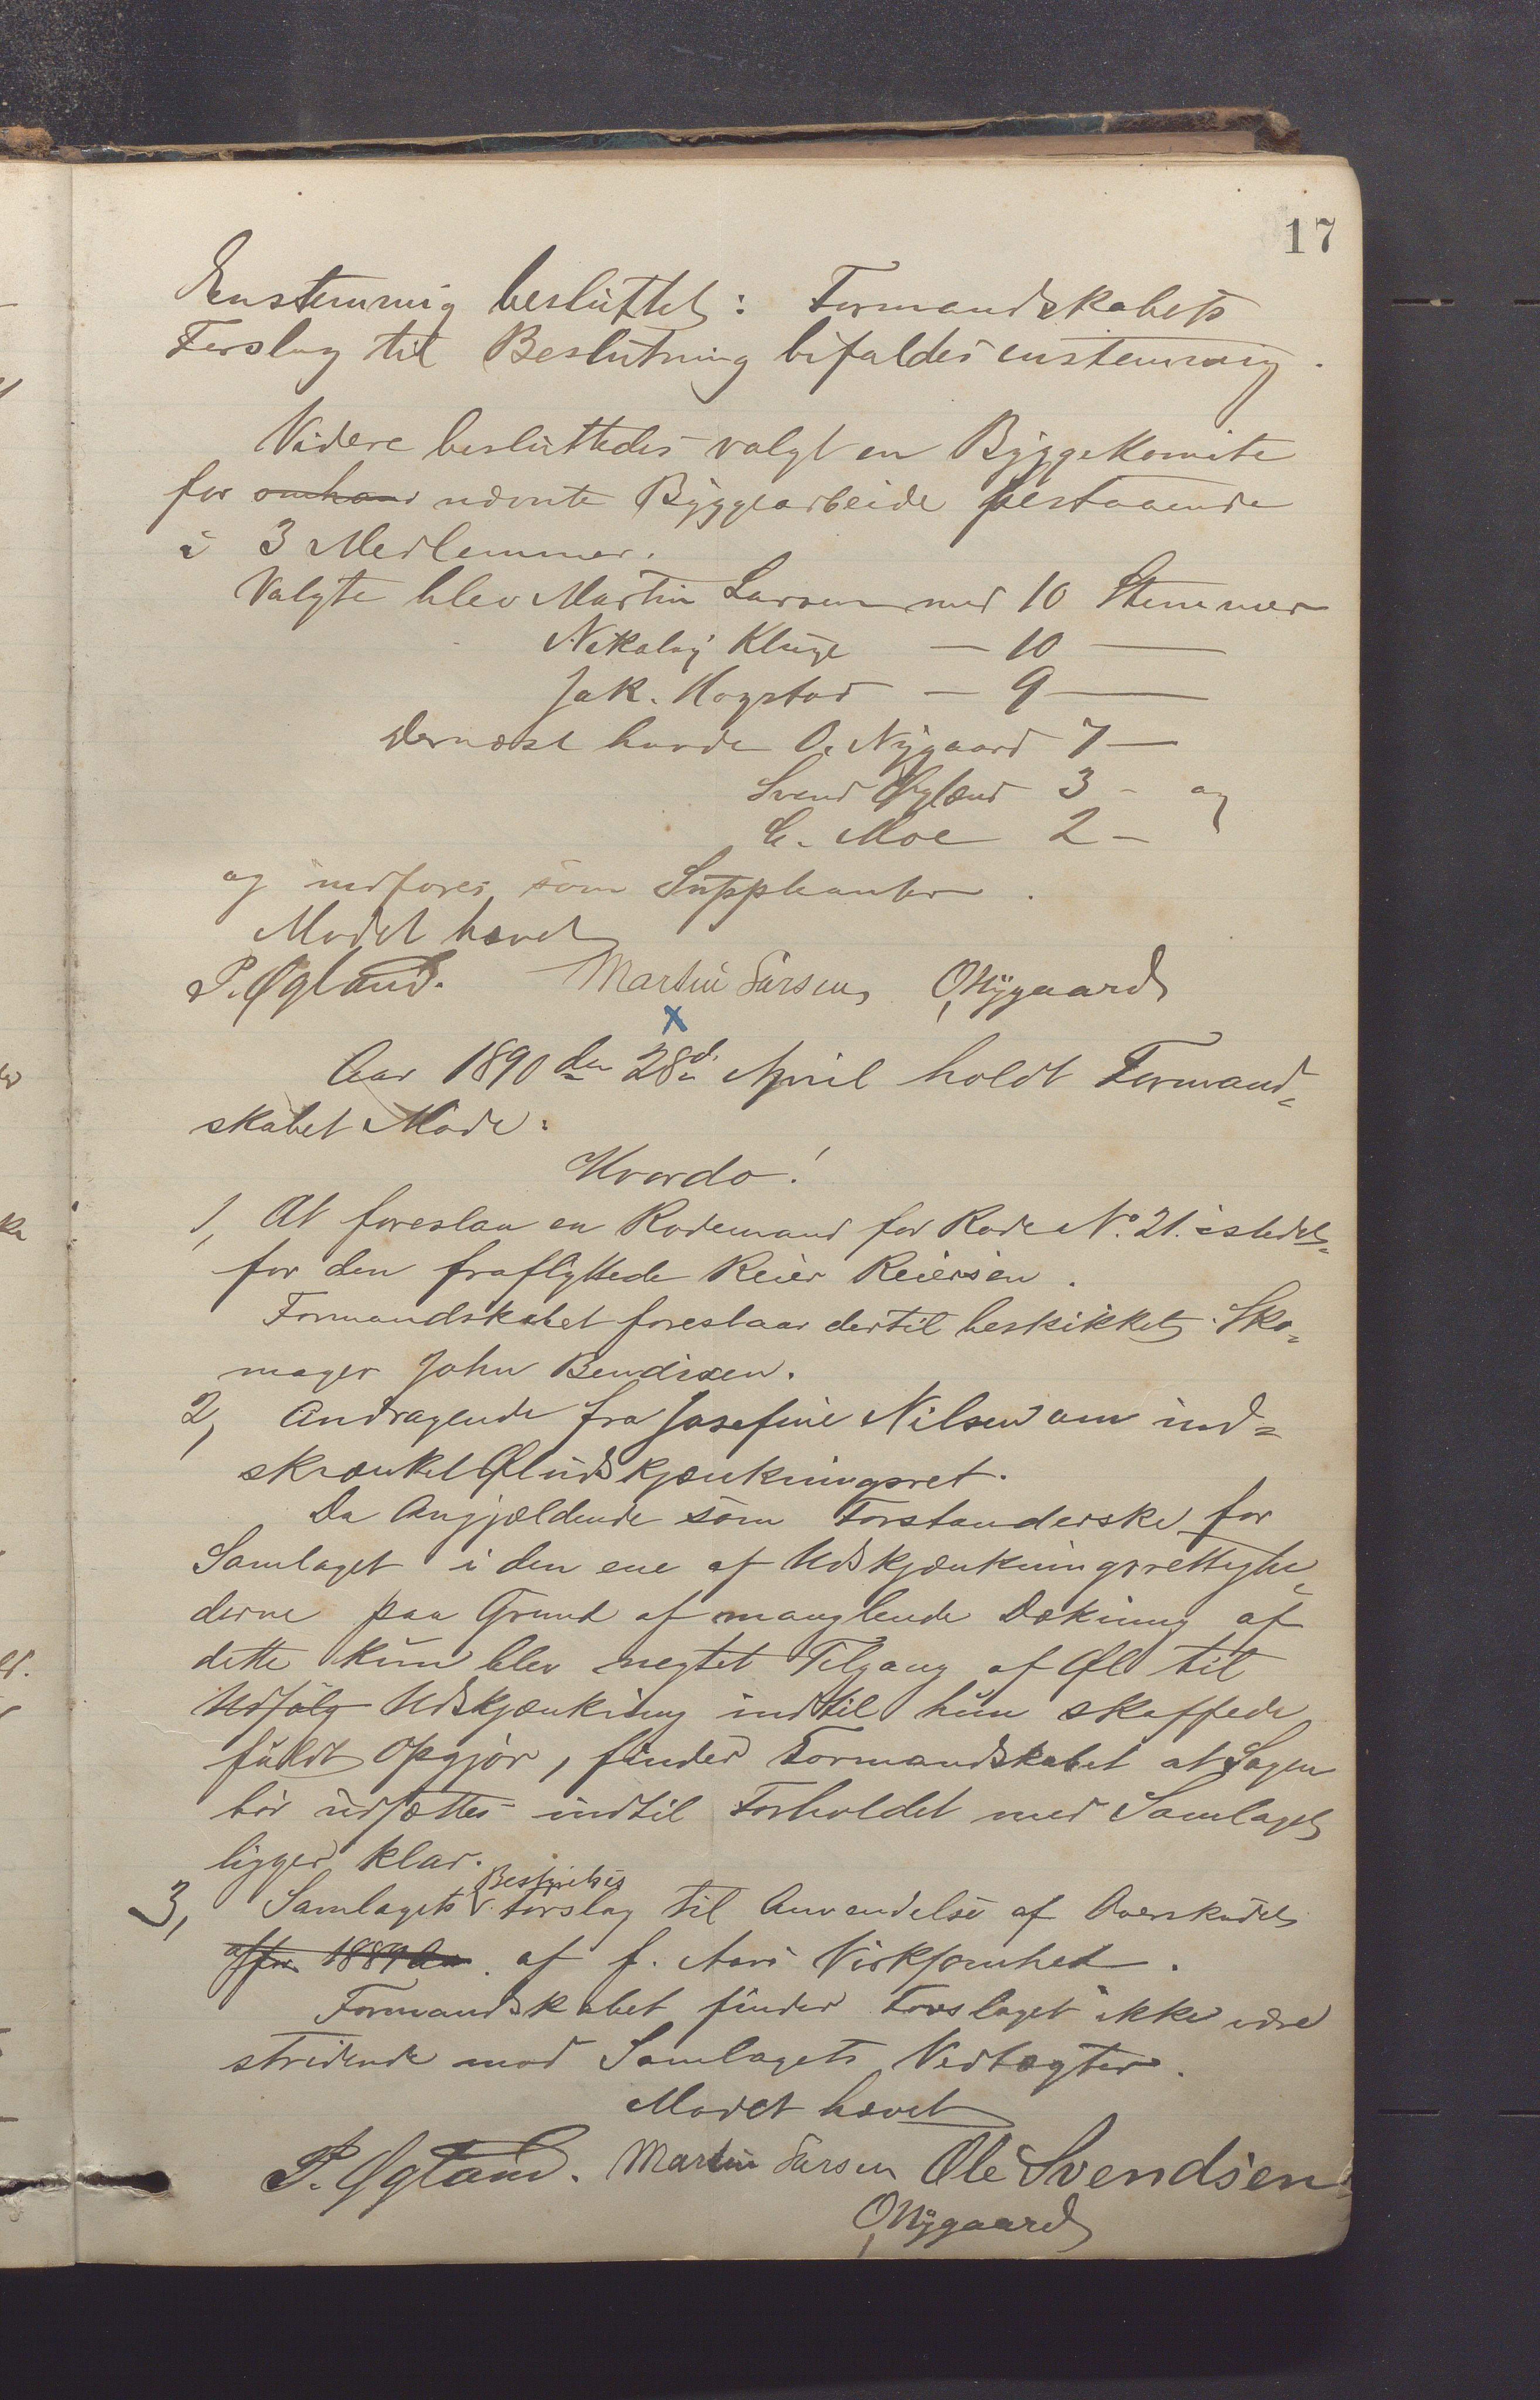 17
Enstemmig besluttet: Formandskabets
Forslag til Beslutning bifaldes enstemmig.
Videre besluttedes valgt en Byggekomite
for omhan nævnte Byggearbeide bestaaende
i 3 Medlemmer.
Valgte blev Martin Larsen med 10 Stemmer
Nikolaj Kluge — 10 —
Jak. Hogstad — 9 —
Dernæst havde O. Nygaard 7 —
Svend Øglænd 3 - og
C. Moe 2 -
og indføres som Suppleanter.
Mødet hævet
P. Øgland. Martin Larsen O Nygaard
x
Aar 1890 den 28de April holdt Formand=
skabet Møde:
Hvorda!
1, At foreslaa en Rodemand for Rode No. 21. istedet=
for den fraflyttede Reier Reiersen.
Formandskabet foreslaar dertil beskikket Sko=
mager John Bendixen.
2, Andragende fra Josefine Nilsen om ind=
skrænket Øludskjænkningsret.
Da Angjældende som Forstanderske for
Samlaget i den ene af Udskjænkningsrettighe=
derne paa Grund af manglende Dækning af
dette kun blev negtet Tilgang af Øl til
Udsalg Udskjænkning indtil hun skaffede
fuldt Opgjør, finder Formandskabet at Sagen
bør udsættes indtil Forholdet med Samlaget
ligger klar.
3, Samlagets Bestyrelses Forslag til Anvendelse af Overskudet
for 1889 af f. Aars Virksomhed.
Formandskabet finder Forslaget ikke være
stridende mod Samlagets Vedtægter.
Mødet hævet
P. Øgland. Martin Larsen Ole Svendsen
O Nygaard